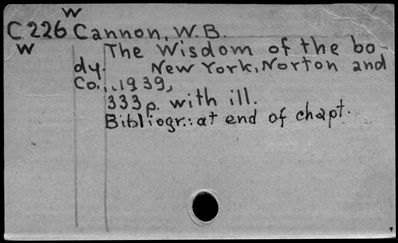 W
C226 Cannon, W.B.
W The Wisdom of the bo-
dy. New York, Norton and
Co., 1939,
333p. with ill.
Bibliogr.: at end of chapt.